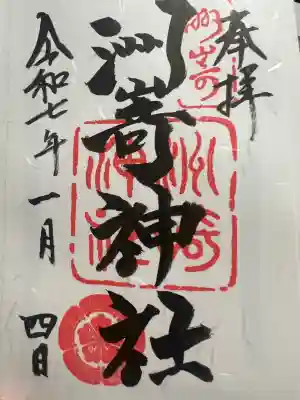 奉拝
洲崎
洲嵜神社
洲崎
神社
令和七年一月四日